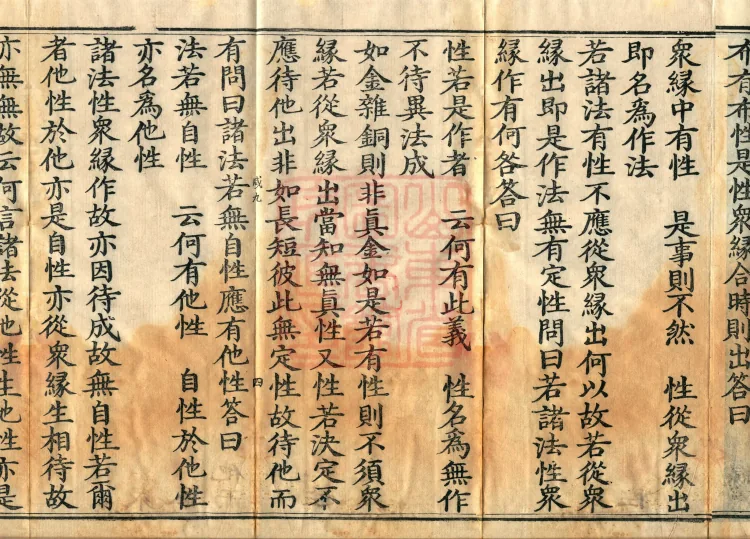 布有布性是性衆緣合時則出答曰
衆緣中有性　是事則不然　性從衆緣出
即名為作法
若諸法有性不應從衆緣出何以故若從衆
緣出即是作法無有定性問曰若諸法性衆
緣作有何咎答曰
性若是作者　云何有此義　性名為無作
不待異法成
如金雜銅則非真金如是若有性則不須衆
緣若從衆緣出當知無真性又性若決定不
應待他出非如長短彼此無定性故待他而
咸九　四
有問曰諸法若無自性應有他性答曰
法若無自性　云何有他性　自性於他性
亦名為他性
諸法性衆緣作故亦因待成故無自性若爾
者他性於他亦是自性亦從衆緣生相待故
亦無無故云何言諸法從他性生他性亦是